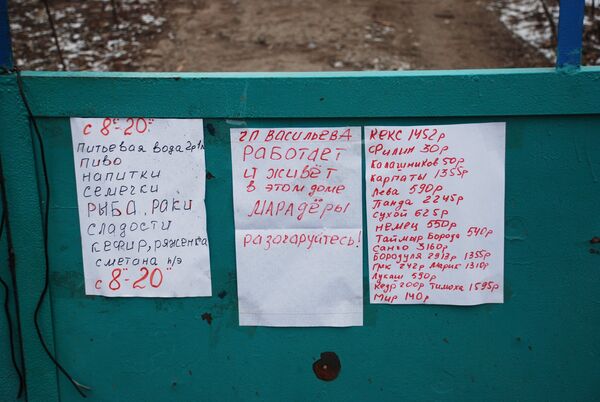 с 8⁰⁰-20⁰⁰
Питьевая вода 2р 1л
пиво
напитки
семечки
РЫБА, РАКИ
сладости
кефир, ряженка
сметана п/э
с 8⁰⁰-20⁰⁰
ЧП ВАСИЛЬЕВА
РАботАет
и живёт
в этом доме
МАРАДЁРЫ
разочаруйтесь!
КЕКС 1452р
Филин 30р
Калашников 50р
Карпаты 1355р
Лева 590р
Панда 2245р
Сухой 625р
НЕМЕЦ 550р
Таймыр Борода 540р
Санго 3160р
Бородуля 2913р 1355р
Грк 242р Марик 1310р
Лукаш 590р
Кедр 200р Тимоха 1595р
Мир 140р